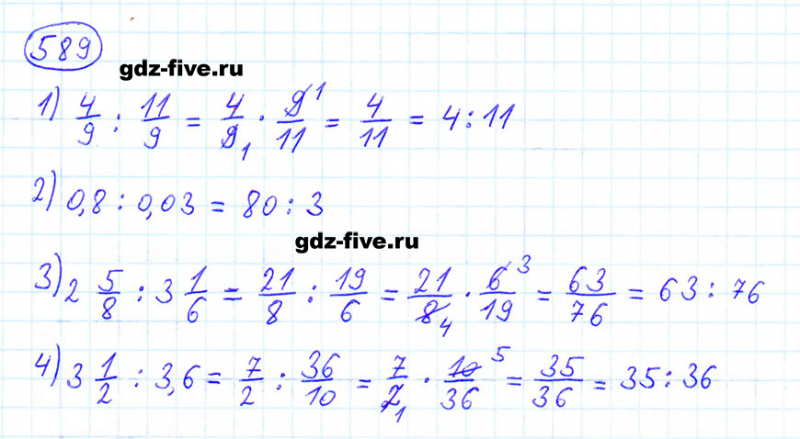 589
gdz-five.ru
1) 4/9 : 11/9 = 4/9₁ · 9¹/11 = 4/11 = 4:11
2) 0,8 : 0,03 = 80 : 3
gdz-five.ru
3) 2 5/8 : 3 1/6 = 21/8 : 19/6 = 21/8₄ · 6³/19 = 63/76 = 63 : 76
4) 3 1/2 : 3,6 = 7/2 : 36/10 = 7/2₁ · 10⁵/36 = 35/36 = 35 : 36